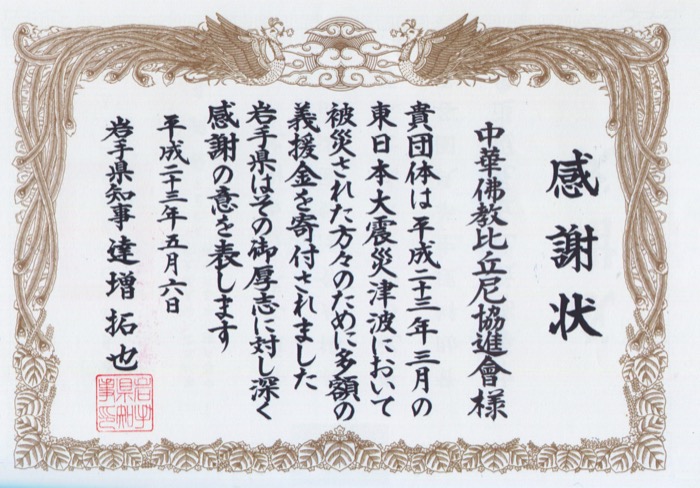 感謝状
中華佛教比丘尼協進會様
貴団体は平成二十三年三月の
東日本大震災津波において
被災された方々のために多額の
義援金を寄付されました
岩手県はその御厚志に対し深く
感謝の意を表します
平成二十三年五月六日
岩手県知事 達増拓也
岩手
県知
事印